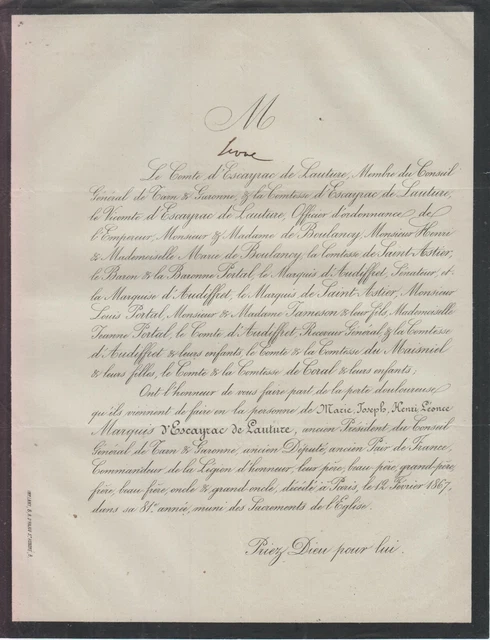 M
Le Comte d'Escayrac de Lauture, Membre du Conseil
Général de Tarn & Garonne, & la Comtesse d'Escayrac de Lauture,
le Vicomte d'Escayrac de Lauture, Officier d'ordonnance de
l'Empereur, Monsieur & Madame de Boulancy, Monsieur Henri
& Mademoiselle Marie de Boulancy, la Comtesse de Saint-Astier,
le Baron & la Baronne Portal, le Marquis d'Audiffret, Sénateur, et
la Marquise d'Audiffret, le Marquis de Saint-Astier, Monsieur
Louis Portal, Monsieur & Madame Jameson & leur fils, Mademoiselle
Jeanne Portal, le Comte d'Audiffret Receveur Général & la Comtesse
d'Audiffret & leurs enfants, le Comte & la Comtesse du Maisniel
& leurs filles, le Comte & la Comtesse de Coral & leurs enfants;
Ont l'honneur de vous faire part de la perte douloureuse
qu'ils viennent de faire en la personne de Marie, Joseph, Henri, Léonce
Marquis d'Escayrac de Lauture, ancien Président du Conseil
Général de Tarn & Garonne, ancien Député, ancien Pair de France,
Commandeur de la Légion d'honneur, leur père, beau-père, grand-père,
frère, beau-frère, oncle & grand-oncle, décédé à Paris, le 12 Février 1867,
dans sa 81e année, muni des Sacrements de l'Eglise.
Priez Dieu pour lui.